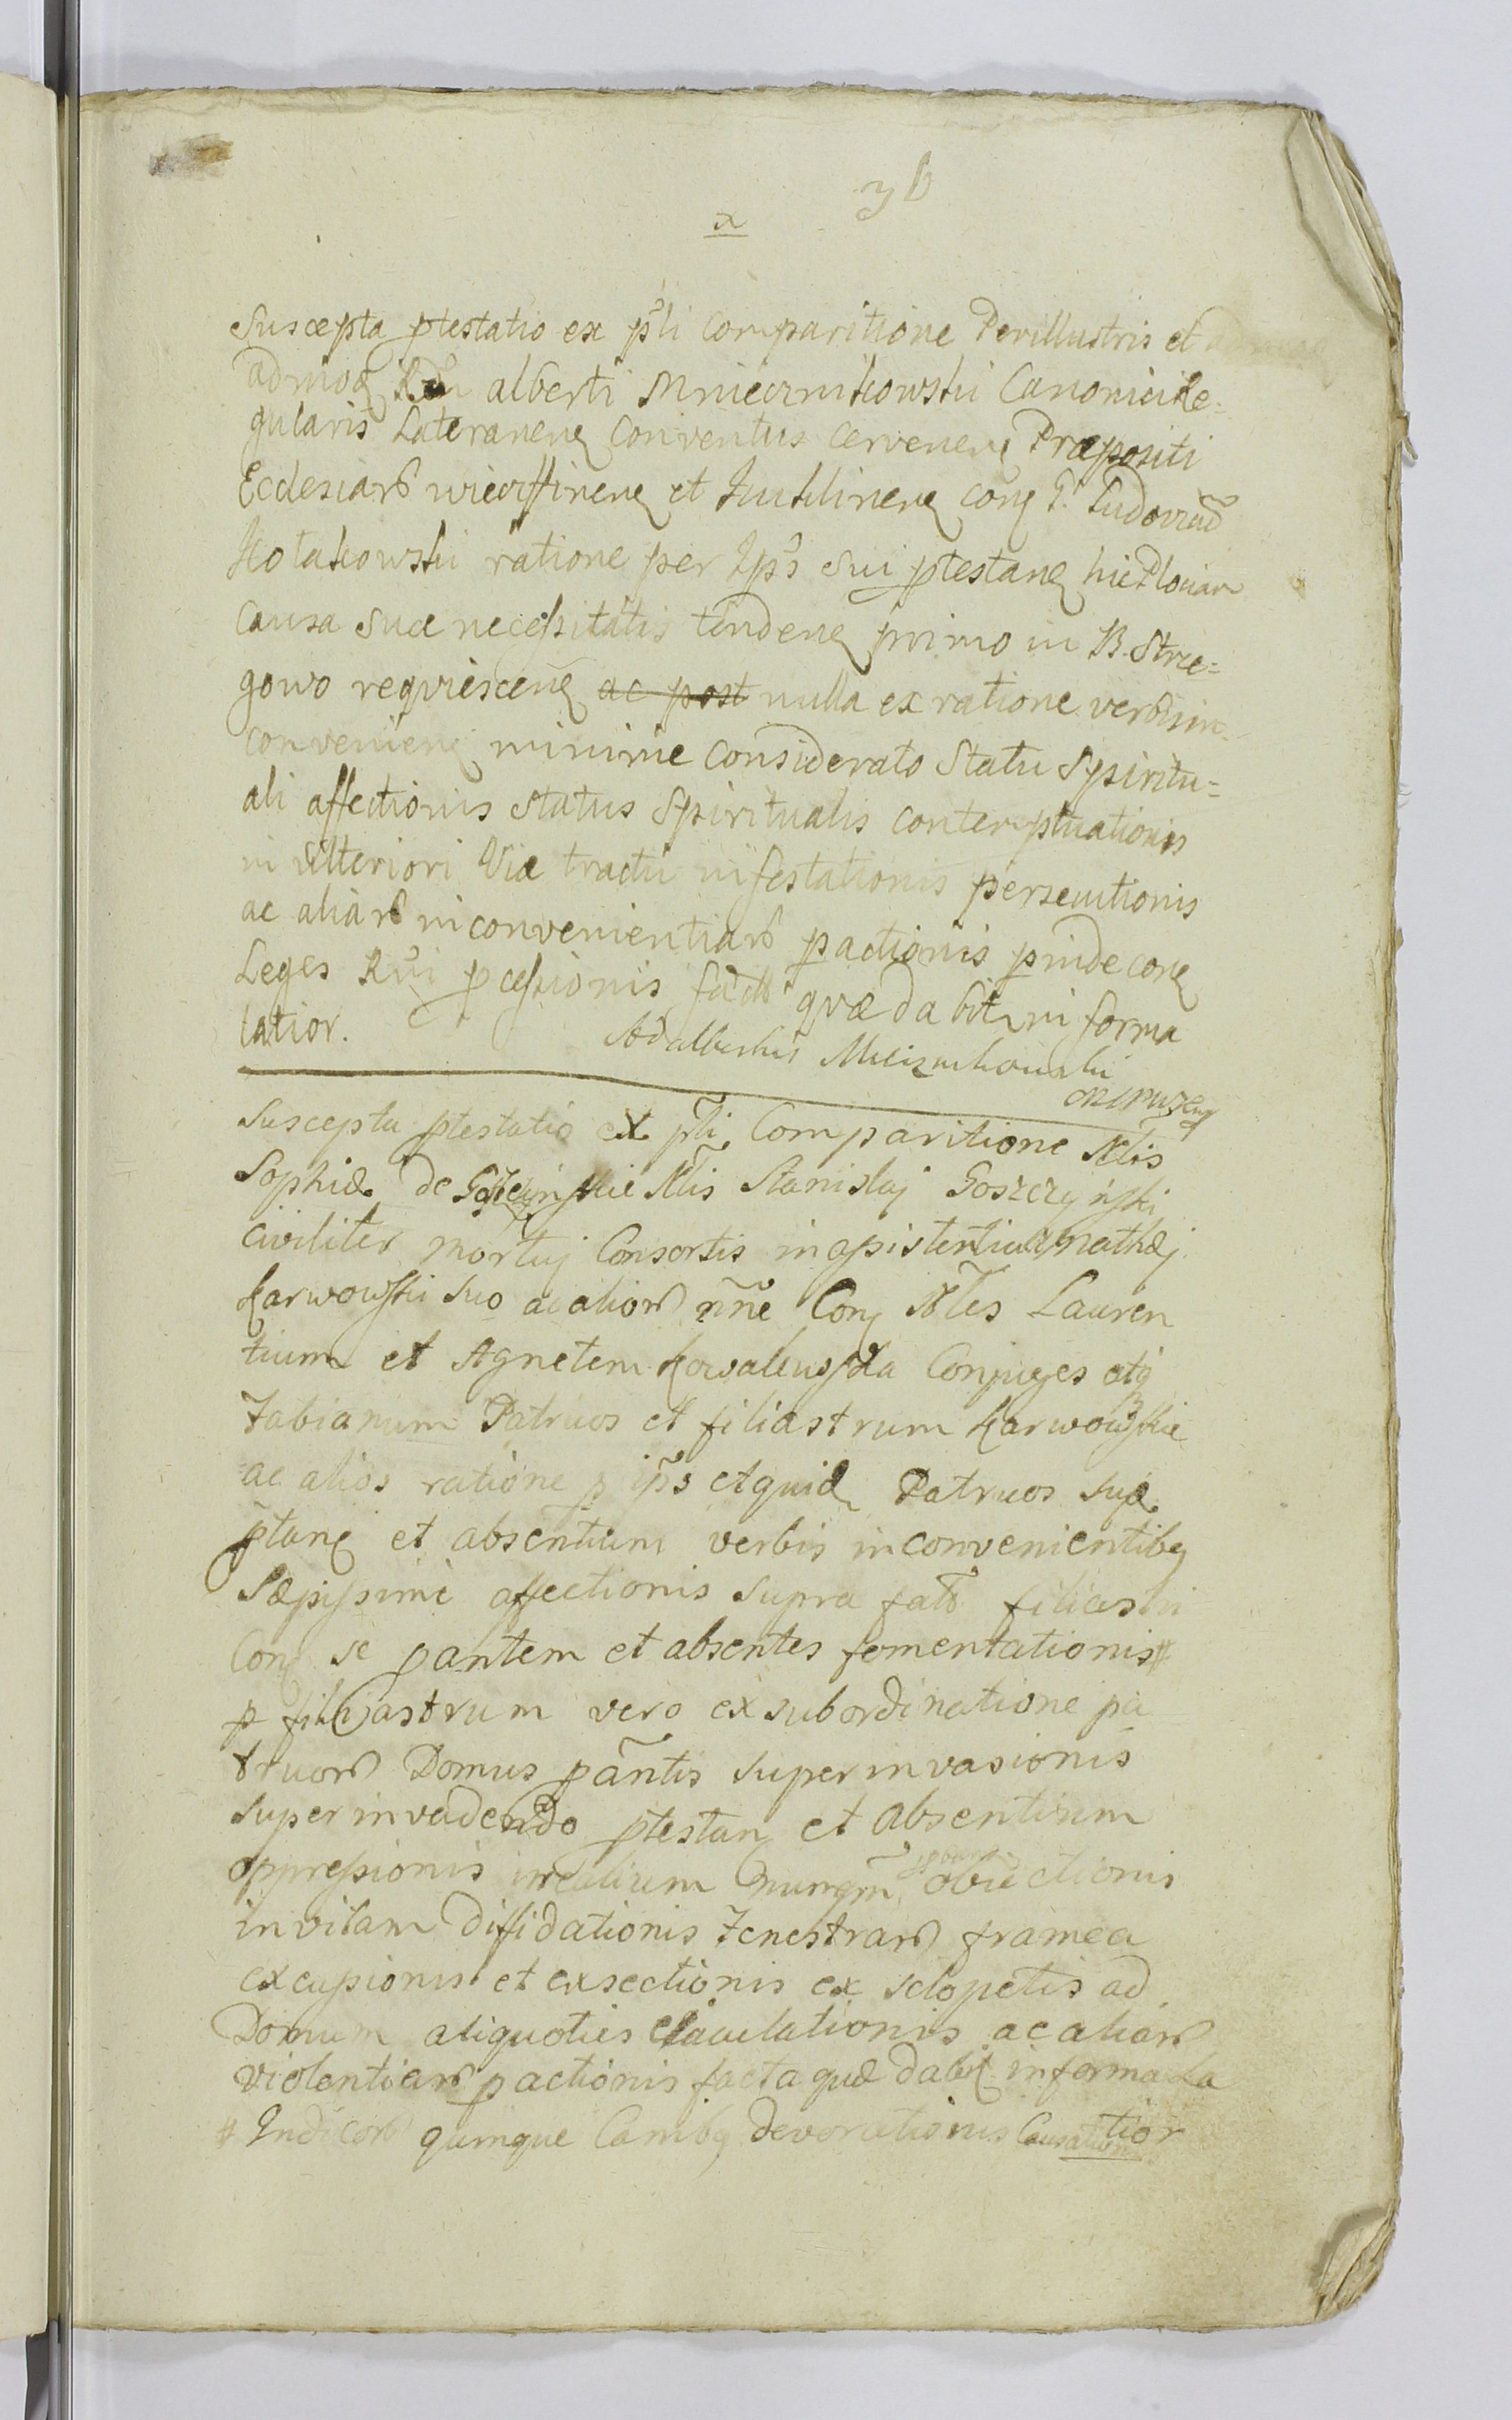 x
Suscepta ptestatio ex pñti Comparitione Perillustris et
admoq Rdi alberti Mniecznikowski Canonici Re=
gularis Lateranenq Conventus Cervenenq Præpositi
Ecclesiarū et conq G. Ludovicū
Kołakowski ratione per Ips̃ sui ptestanq hic Plociam
causa suæ necessitatis tendenq primo in B. Strze=
gowo reqviescenq ac post nulla ex ratione verbis in=
convenienq minime considerato Statu Spiritu=
ali affectionis status Spiritualis contemptuationis
in ulteriori Viæ tractu infestationis persecutionis
ac aliarū inconvenientiarū pactionis pinde conq
Leges Rñi pcessionis facta qvæ dabit in forma
latior.
Adalbertus Mieiznikowski
Suscepta ptestatio ex pñti Comparitione Nblis
Sophiæ de Nblis Stanislaj Goszczyński
civiliter mortuj Consortis in assistentia Mathæj
Karwowski suo ac aliorū nñe Conq Nbles Lauren
tium et Agnetem Kowalewska Conjuges atq
Fabianum Patruos et filiastrum Karwowskie
ac alios ratione p ips̃ et quid Patruos suæ
ptanq et absentium verbis inconvenientibq
Sæpissime affectionis supra fatū filiastri
Conq se pantem et absentes fomentationis #
p filiastrum vero ex subordinatione pa
truorū Domus pãntis superinvasionis
superinvadendo ptestan et absentium
oppressionis obiectionis
in vitam diffidationis Fenestrarū framea
excussionis et exsectionis ex sclopetis ad
Domum aliquoties eiaculationis ac aliarū
violentiarū pactionis facta quæ dabit in forma la
tior
# Indicorū quinque Canibq devorationis Causationis